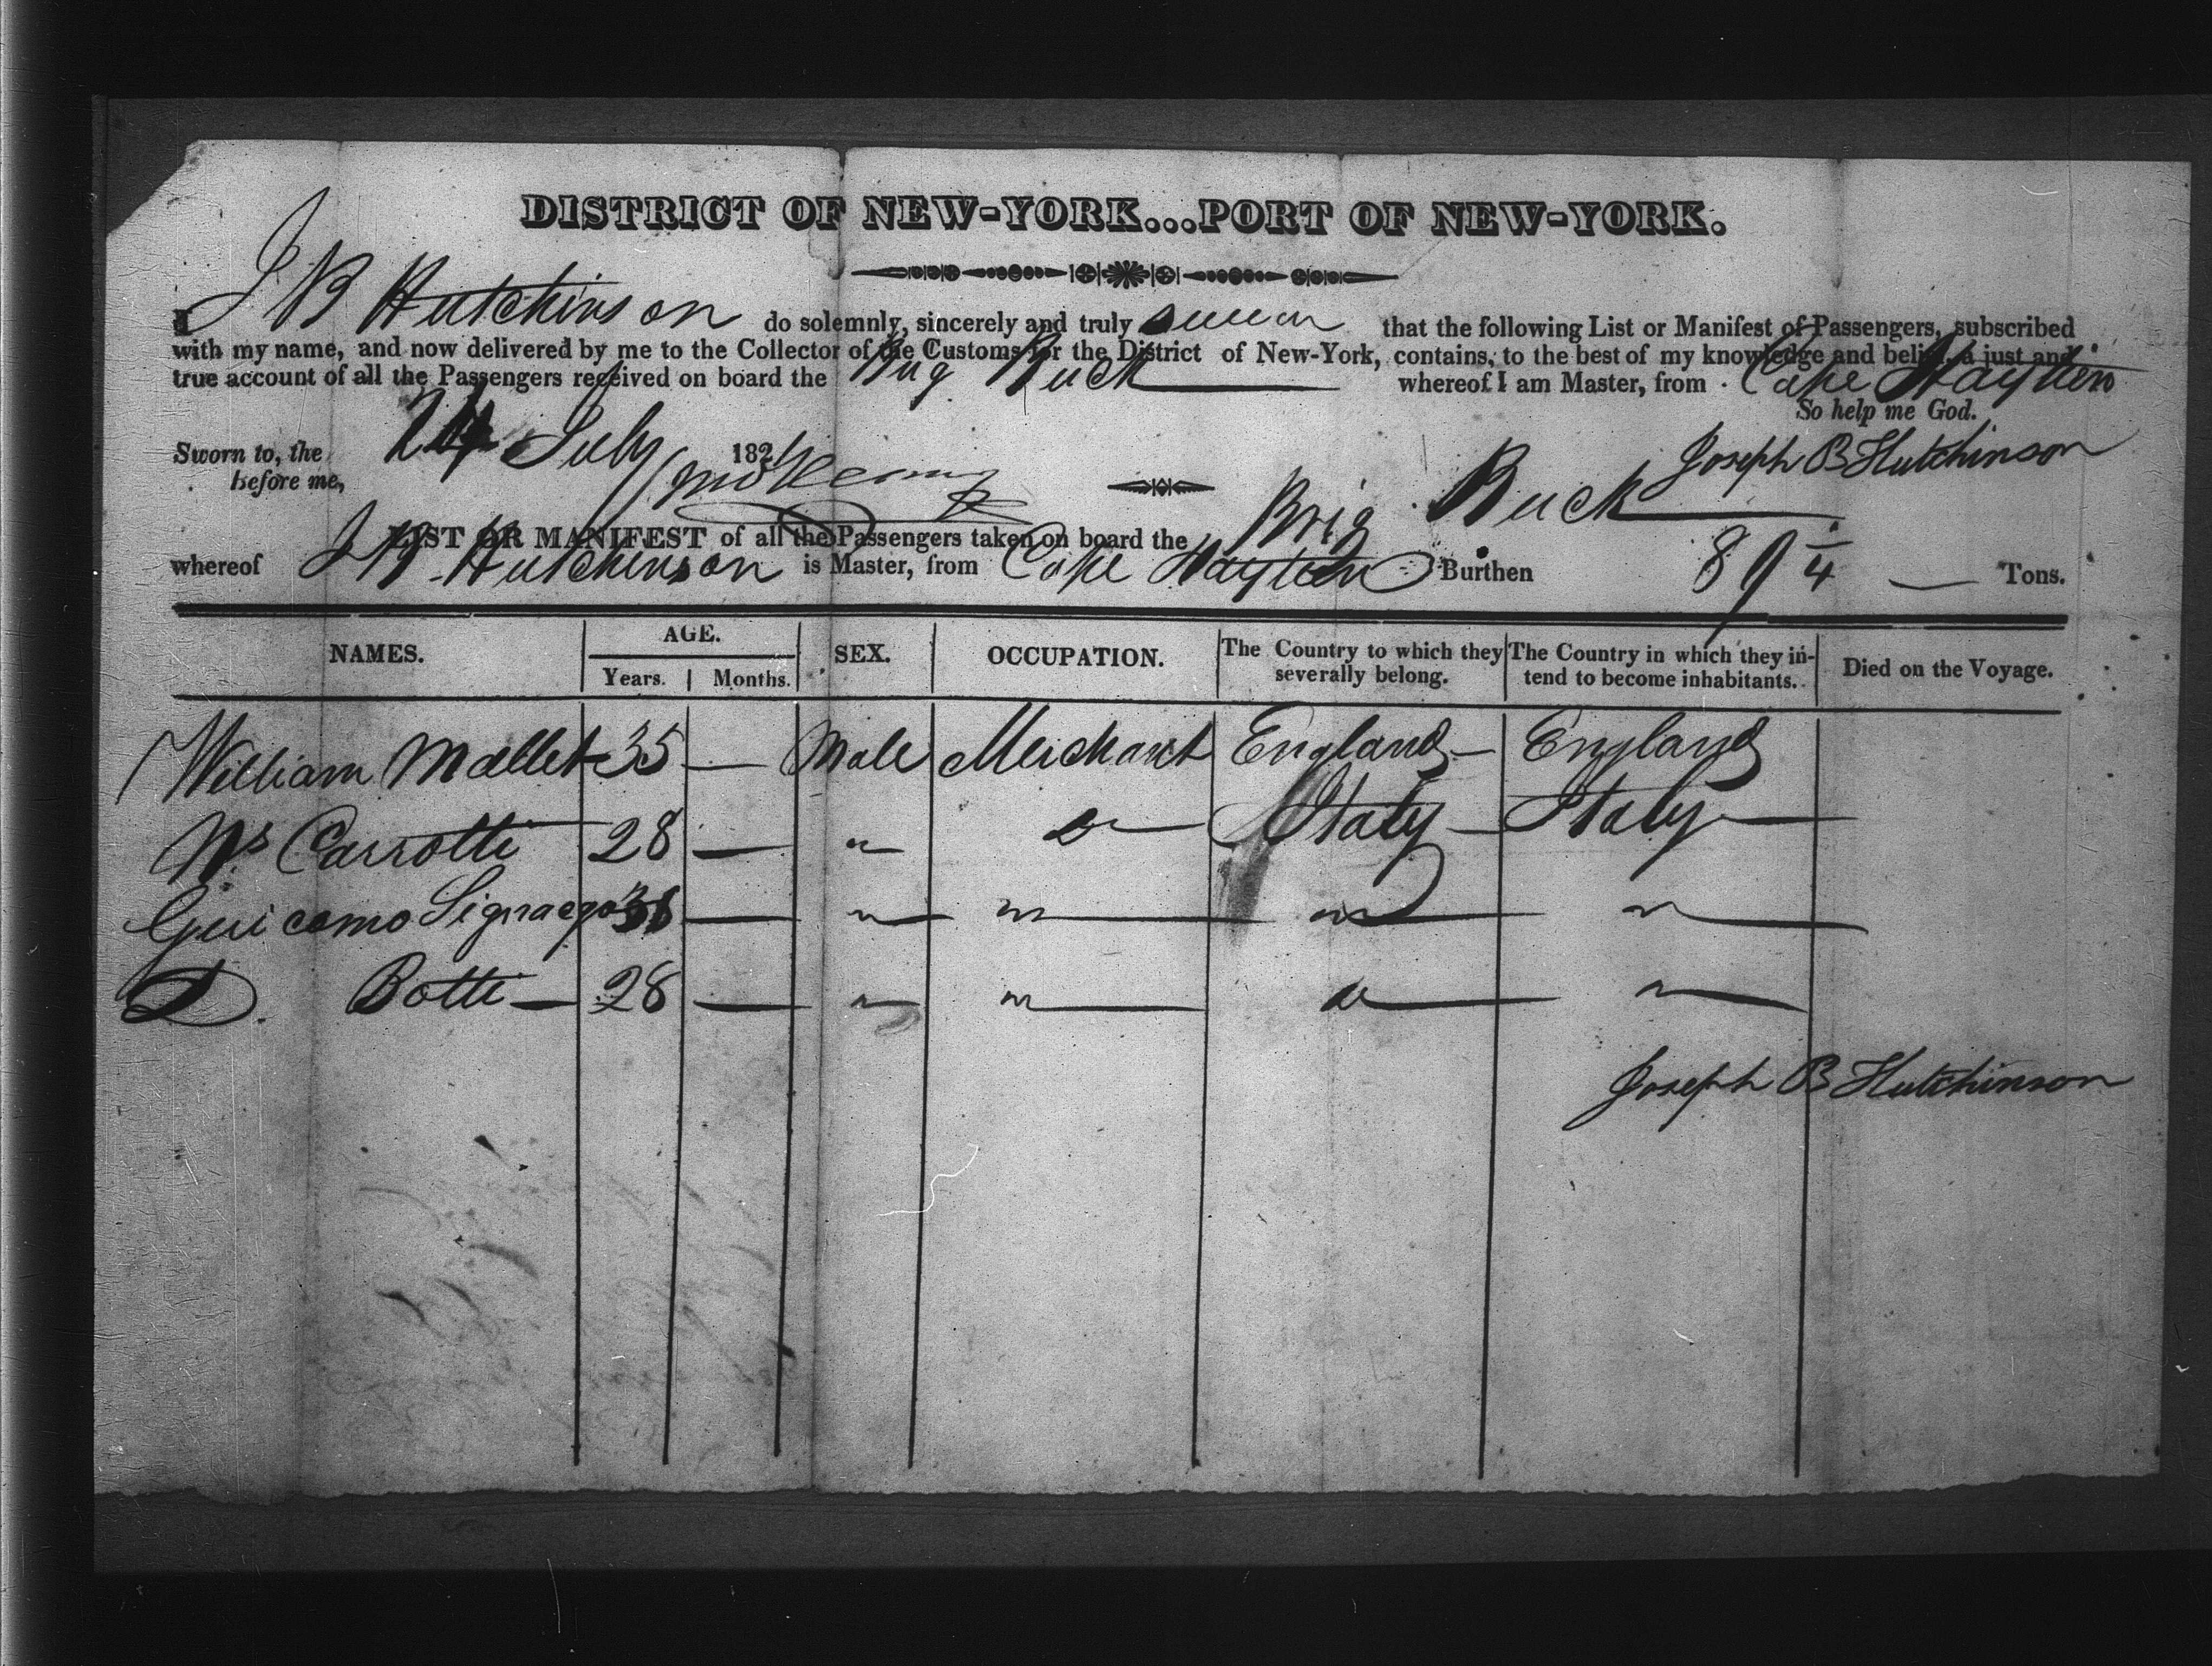 DISTRICT OF NEW-YORK...PORT OF NEW-YORK.
I J B Hutchinson do solemnly, sincerely and truly swear that the following List or Manifest of Passengers, subscribed
with my name, and now delivered by me to the Collector of the Customs for the District of New-York, contains, to the best of my knowledge and belief, a just and
true account of all the Passengers received on board the Brig Buck whereof I am Master, from Cape Haytien
So help me God.
Sworn to, the 24 July 182
before me,
Joseph B Hutchinson
LIST OR MANIFEST of all the Passengers taken on board the Brig Buck
whereof J B Hutchinson is Master, from Cape Haytien Burthen 89 1/4 Tons.
NAMES. AGE. Years. Months. SEX. OCCUPATION. The Country to which they severally belong. The Country in which they intend to become inhabitants. Died on the Voyage.
William Mallet 35 — Male Merchant England England
Carrotti 28 — " " Italy Italy
Guicomo — " " " "
D. Botti 28 — " " " "
Joseph B Hutchinson